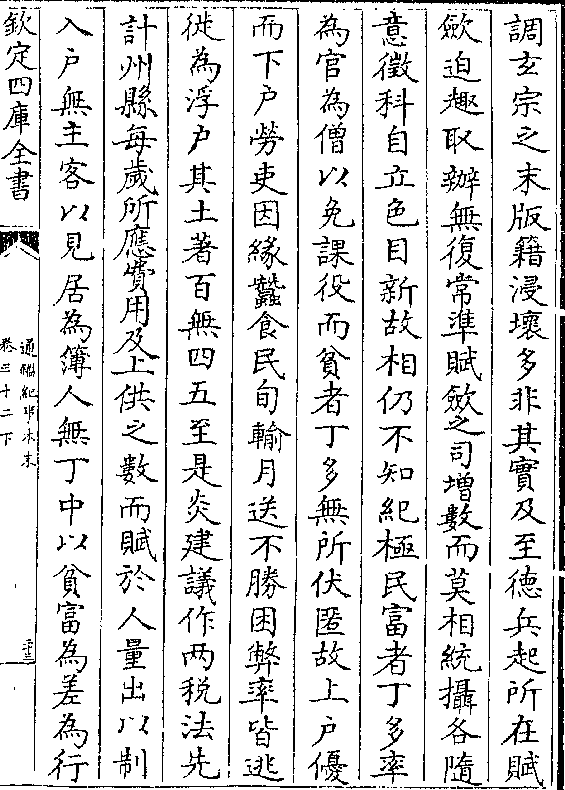 調玄宗之末版籍浸壞多非其實及至德兵起所在賦
歛迫趣取辦無復常準賦歛之司增數而莫相統攝各隨
意徵科自立色目新故相仍不知紀極民富者丁多率
為官為僧以免課役而貧者丁多無所伏匿故上户優
而下户勞吏因緣蠶食民旬輸月送不勝困弊率皆逃
徙為浮户其土著百無四五至是炎建議作兩稅法先
計州縣每歲所應費用及上供之數而賦於人量出以制
入户無主客以見居為簿人無丁中以貧富為差為行
欽定四庫全書
通鑑紀事本末
卷三十二下
二十三